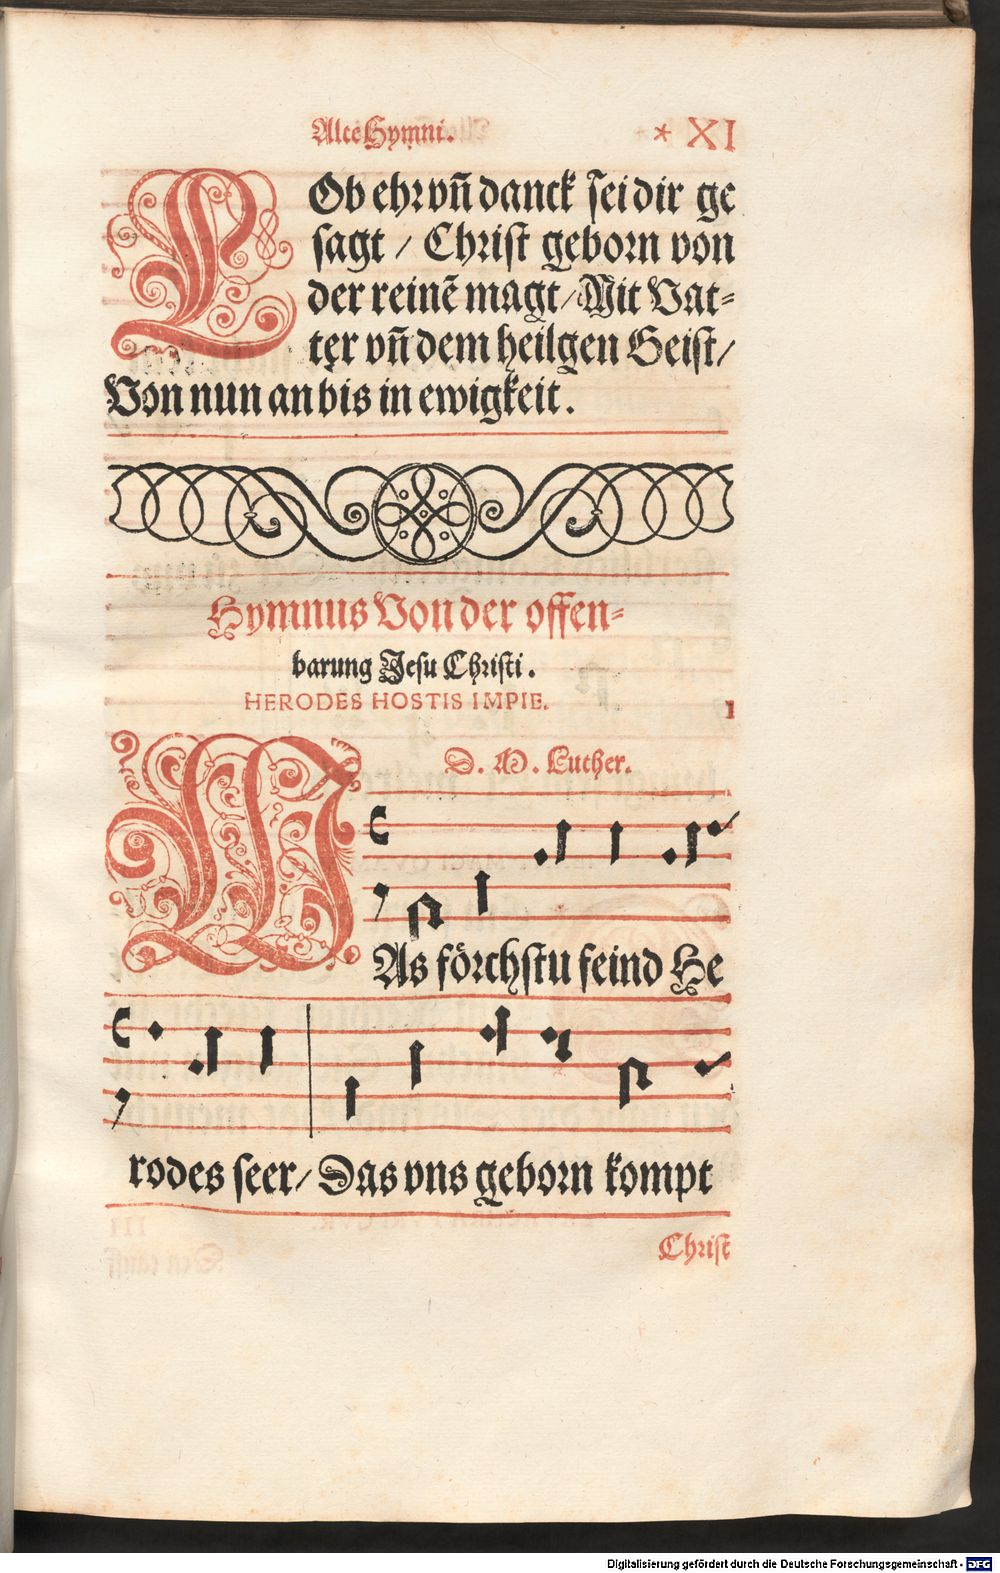 Alte Hymni. * XI
LOb ehr vñ danck sei dir ge
sagt / Christ geborn von
der reinē magt / Mit Vat-
ter vñ dem heilgen Geist /
Von nun an bis in ewigkeit.
Hymnus Von der offen-
barung Jesu Christi.
HERODES HOSTIS IMPIE.
D. M. Luther.
WAs förchstu feind He
rodes seer / Das vns geborn kompt
Christ
Digitalisierung gefördert durch die Deutsche Forschungsgemeinschaft - DFG